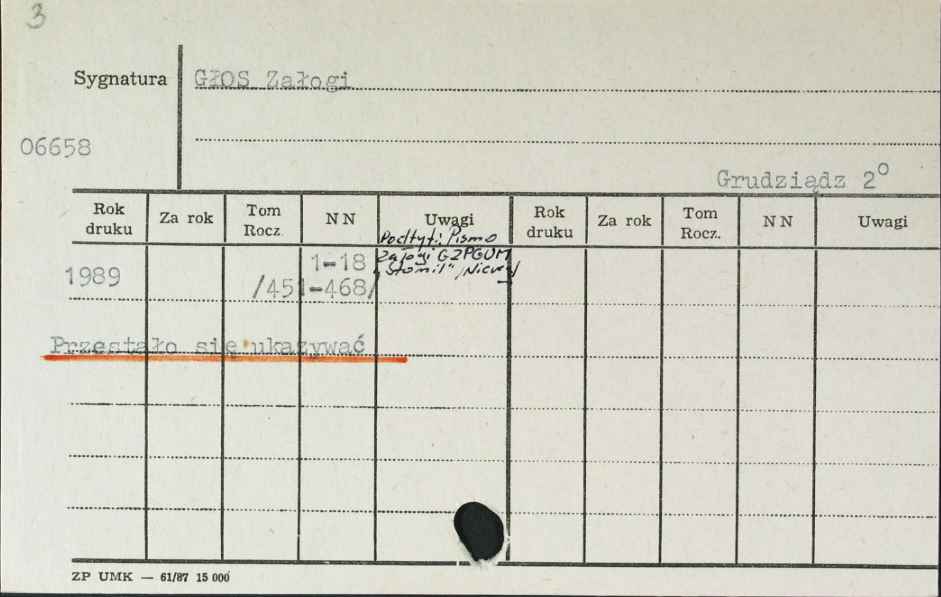 3
Sygnatura GŁOS Załogi
06658
Grudziądz 2°
Rok druku Za rok Tom Rocz. NN Uwagi Rok druku Za rok Tom Rocz. NN Uwagi
Podtyt.: Pismo
załogi GZPGUM
"Stomil"
1989 1-18
/451-468/
Przestało się ukazywać
ZP UMK — 61/87 15 000